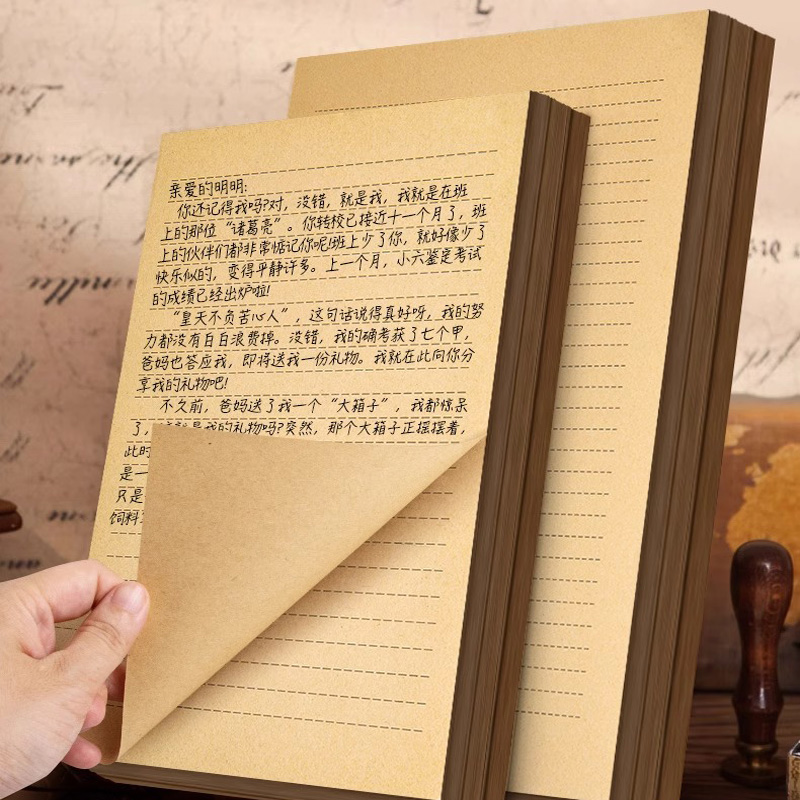 亲爱的明明:
你还记得我吗?对，没错，就是我，我就是在班
上的那位“诸葛亮”。你转校已接近十一个月了，班
上的伙伴们都非常惦记你呢!班上少了你，就好像少了
快乐似的，变得平静许多。上一个月，小六鉴定考试
的成绩已经出炉啦!
“皇天不负苦心人”，这句话说得真好呀，我的努
力都没有白白浪费掉。没错，我的确考获了七个甲，
爸妈也答应我，即将送我一份礼物。我就在此向你分
享我的礼物吧!
不久前，爸妈送了我一个“大箱子”，我都惊呆
了，就是我的礼物吗?突然，那个大箱子正摇摆着，
此时
是一
只是
饲料